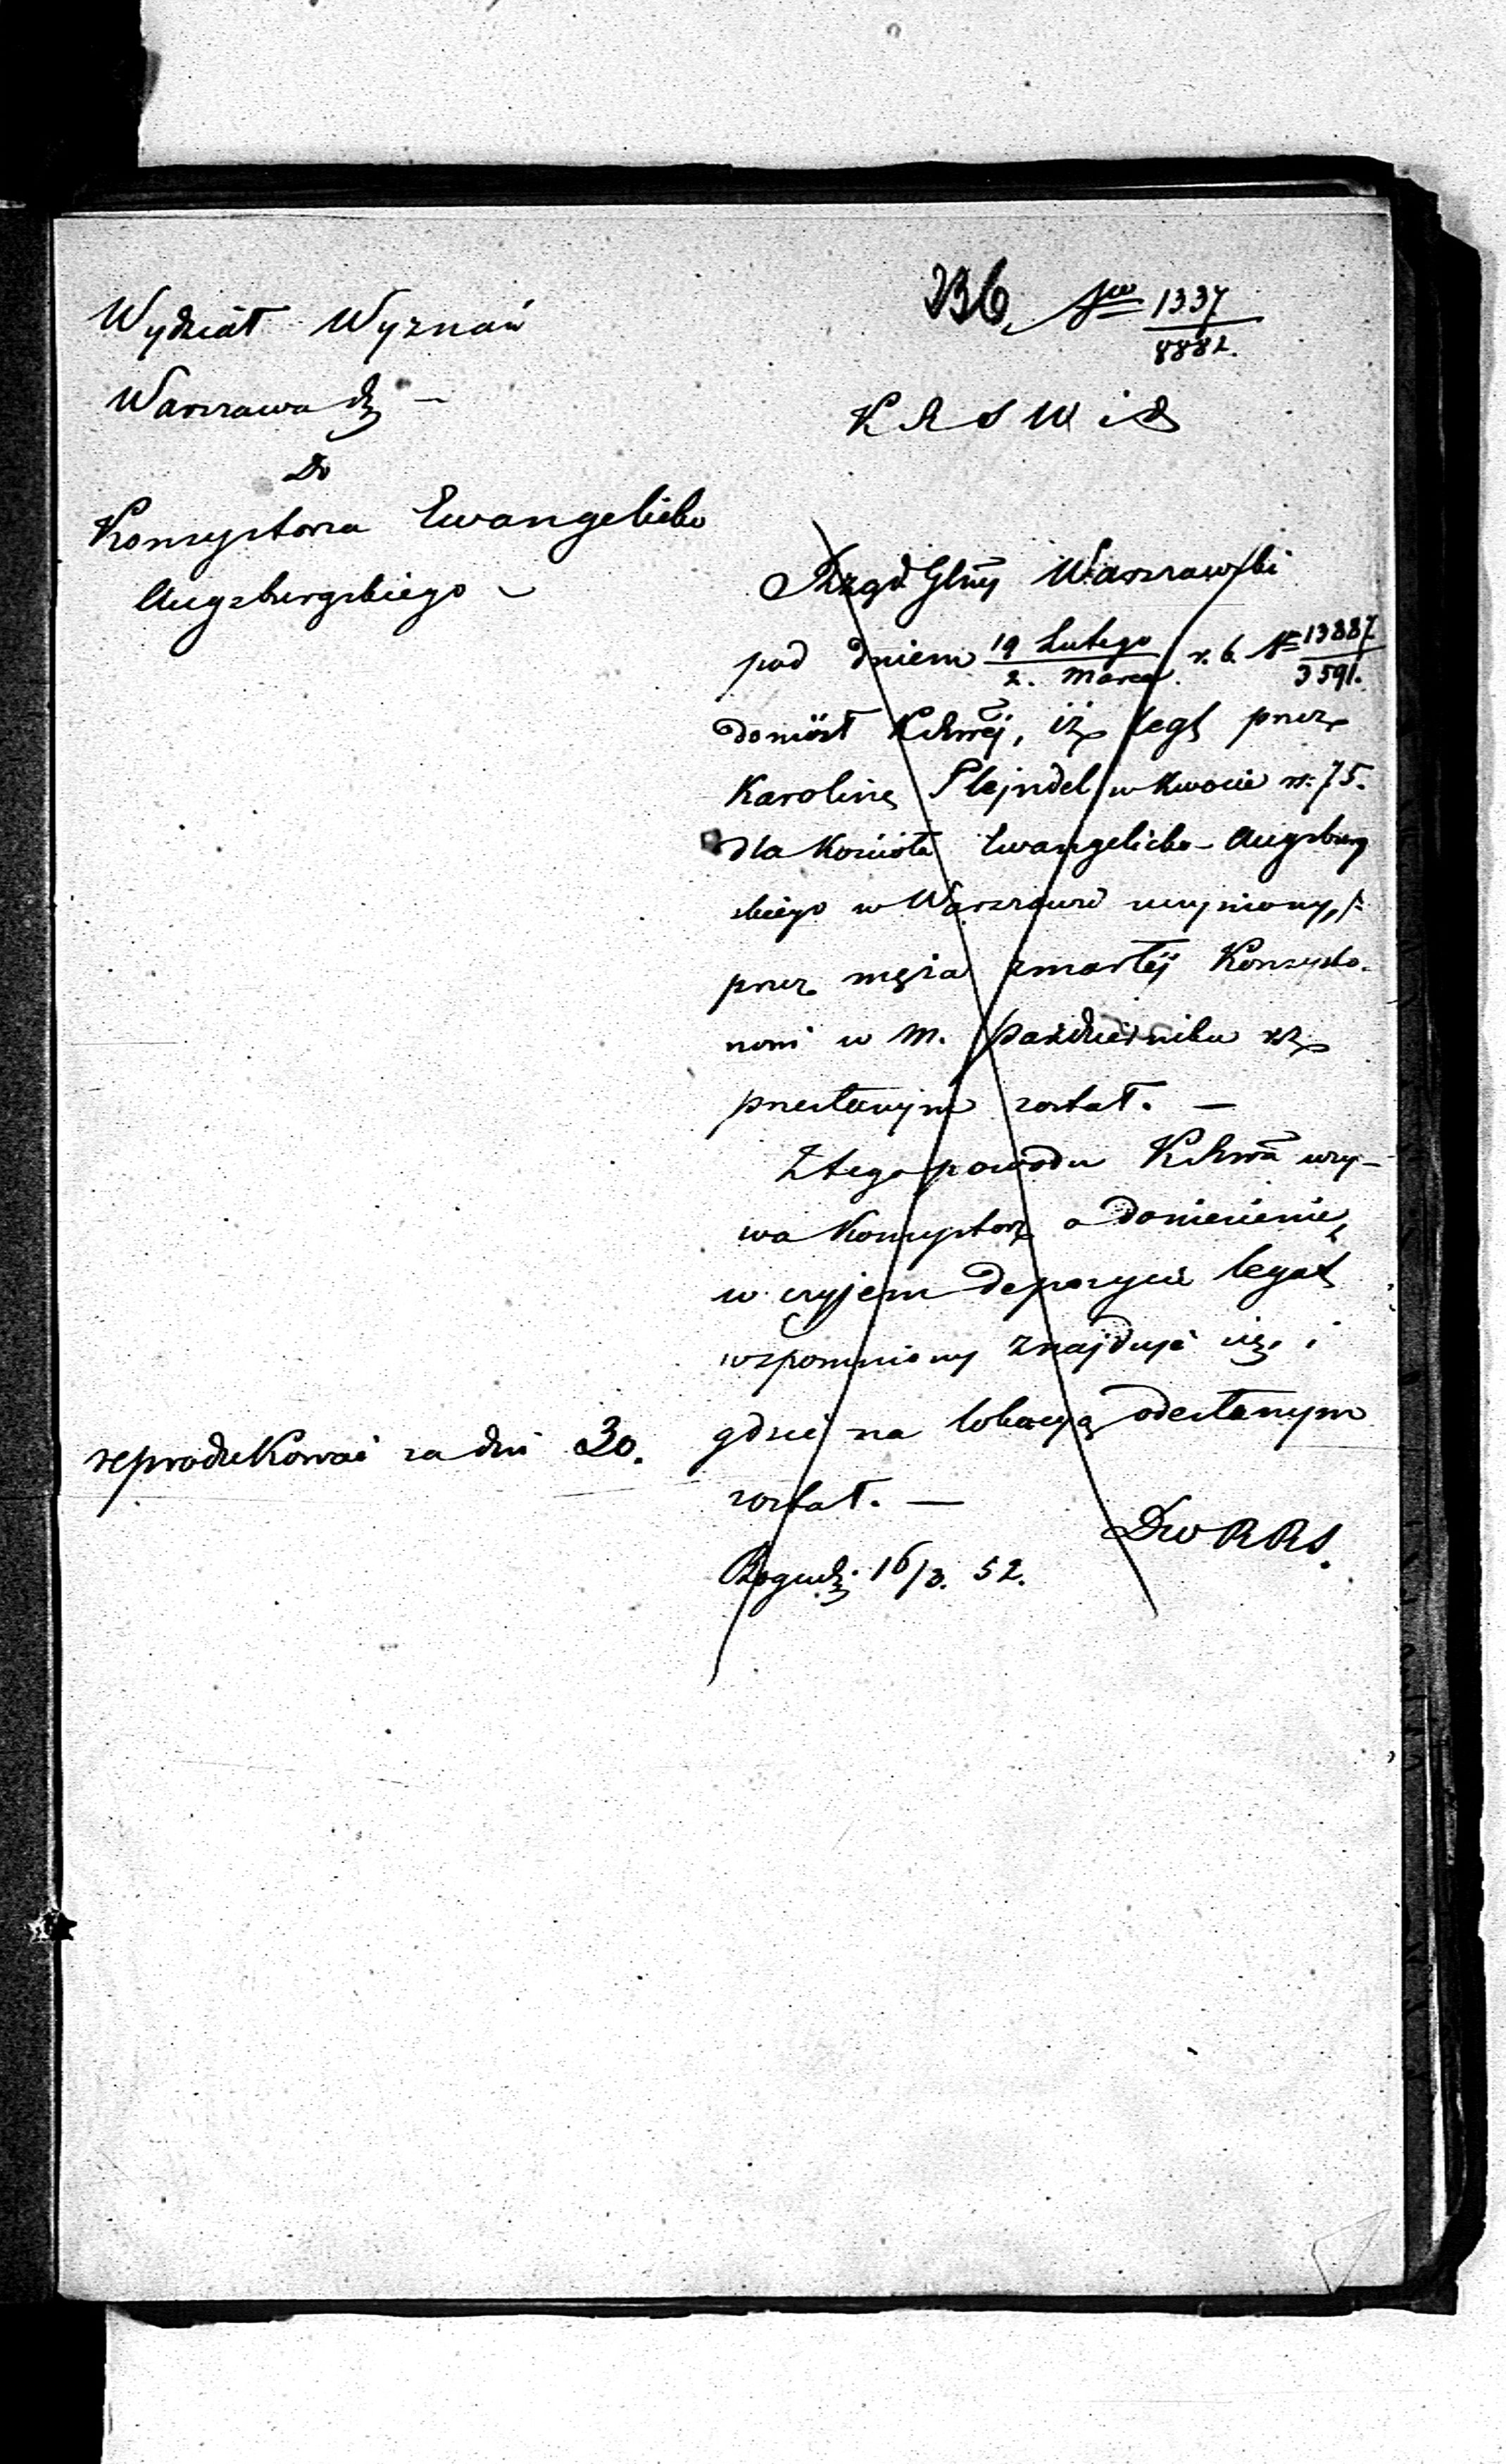 236 Nro 1337/8882.
Wydział Wyznań
Warszawa d.
K R S W i D
Do
Konsystorza Ewangelicko
Augsburgskiego
Rząd Glny Warszawski
pod dniem 19 Lutego/2. Marca r. b. No 13887/3591.
doniósł KRSWej, iż legat przez
Karolinę Stejndel w kwocie rs. 75.
dla Kościoła Ewangelicko-Augsburg
skiego w Warszawie uczyniony,
przez męża zmarłej Konsysto-
rzowi w m. Październiku rz
przesłanym został. —
Z tego powodu KRSWa wzy-
wa Konsystorz o doniesienie,
w czyjem depozycie legat
wspomniony znajduje się, i
gdzie na lokacyą odesłanym
został. —
reprodukować za dni 30.
DwRRS.
16/3. 52.